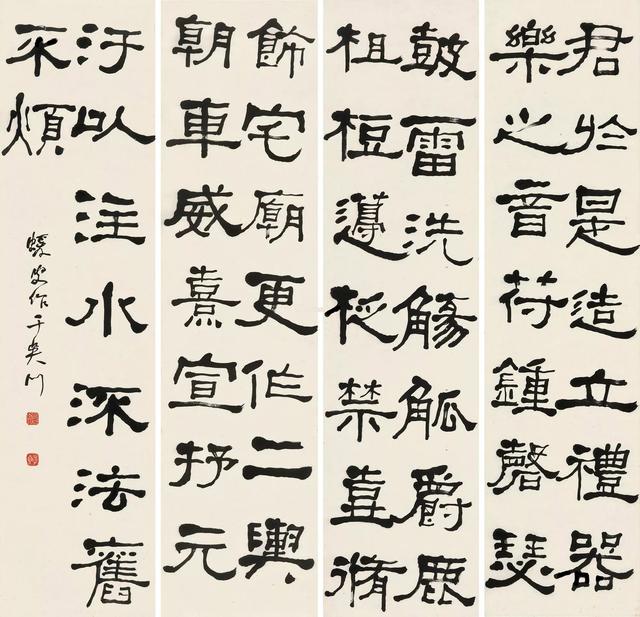 君於是造立禮器
樂之音苻鍾磬瑟
鼓雷洗觴觚爵鹿
柤梪籩柉禁壺脩
飾宅廟更作二輿
朝車威熹宣抒元
汙以注水㳅法舊
不煩
叟作于吳門